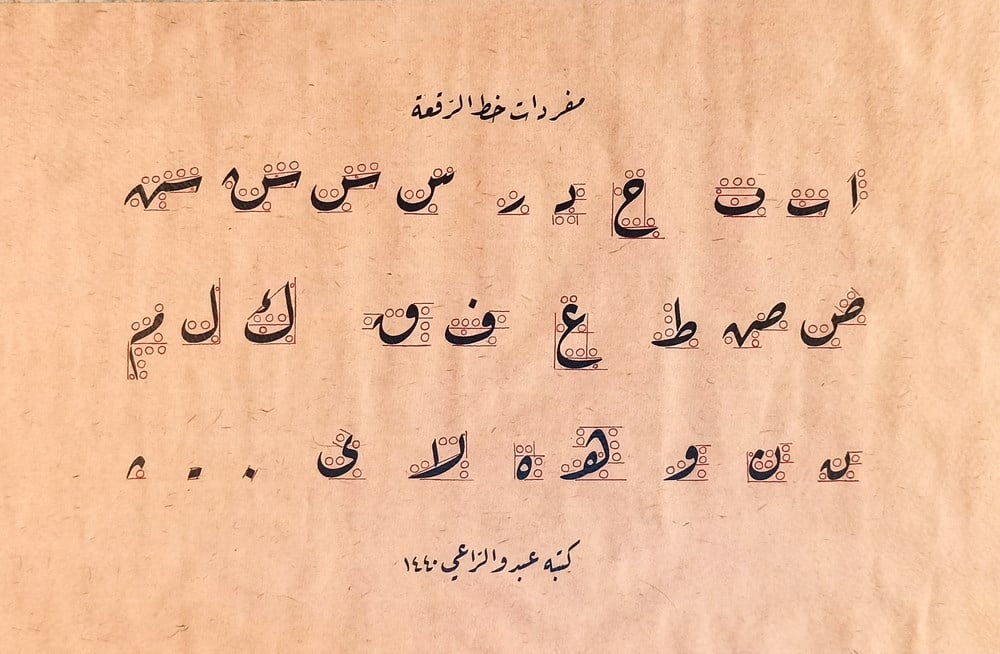 مفردات خط الرقعة
ا ب ں ح د ر س س س س
ص ص ط ع ف ٯ ك ل م
ں ن و ه ه لا ى . . .
كتبه عبدو الراعي ١٤٤٠